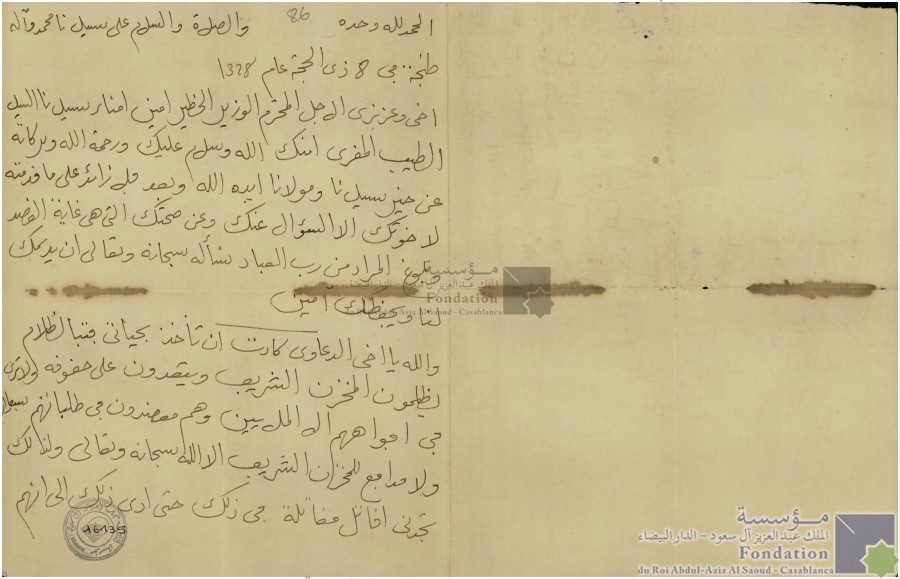 الحمد لله وحده والصلاة والسلام على سيدنا محمد وآله
86
طنجة في 8 ذي الحجة عام 1328
اخي وعزيزي الاجل المحترم الوزير الخطير امين امناء سيدنا السيد
الطيب المقري امنك الله وسلام عليك ورحمة الله وبركاته
عن خير سيدنا ومولانا ايده الله وبعد فلا زائد على ما قدمته
لاخوتك الا السؤال عنك وعن صحتك التي هي غاية القصد
وبلوغ المراد من رب العباد نسأله سبحانه وتعالى ان يديمك
لنا ويحفظك آمين
والله يا اخي الدعاوي كادت ان تأخذ بحياتي فتبا لظلام
يظلمون المخزن الشريف ويتعدون على حقوقه ولا ترى
في افواههم الا الملايين وهم معضدون في طلباتهم
ولا مدافع للمخزن الشريف الا الله سبحانه وتعالى ولذالك
تجدني اقاتل مقاتلة في ذلك حتى ادى ذلك الى انهم
16135
مؤسسة
الملك عبد العزيز آل سعود - الدار البيضاء
Fondation
du Roi Abdul-Aziz Al Saoud - Casablanca
مؤسسة
الملك عبد العزيز آل سعود - الدار البيضاء
Fondation
du Roi Abdul-Aziz Al Saoud - Casablanca